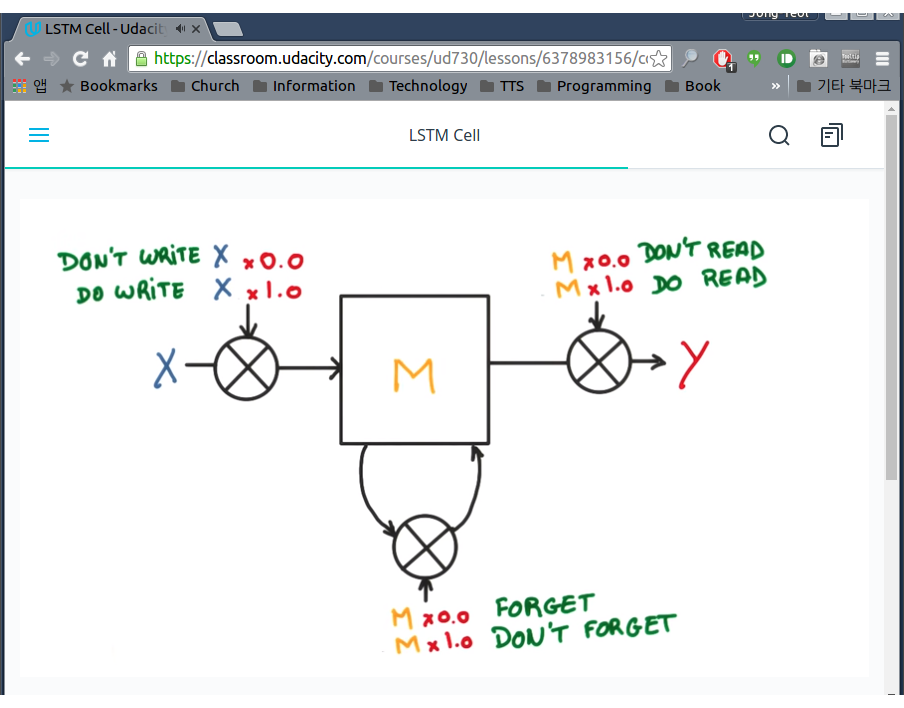 LSTM Cell - Udacit
https://classroom.udacity.com/courses/ud730/lessons/6378983156/c
1
앱 Bookmarks Church Information Technology TTS Programming Book » 기타 북마크
LSTM Cell
DON'T WRITE X x0.0
DO WRITE X x1.0
M x0.0 DON'T READ
M x1.0 DO READ
X
M
Y
M x0.0 FORGET
M x1.0 DON'T FORGET